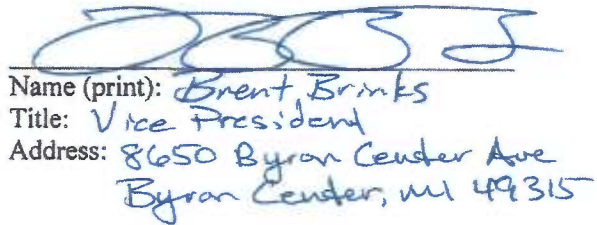 Name (print): Brent Brinks
Title: Vice President
Address: 8650 Byron Center Ave
Byron Center, MI 49315